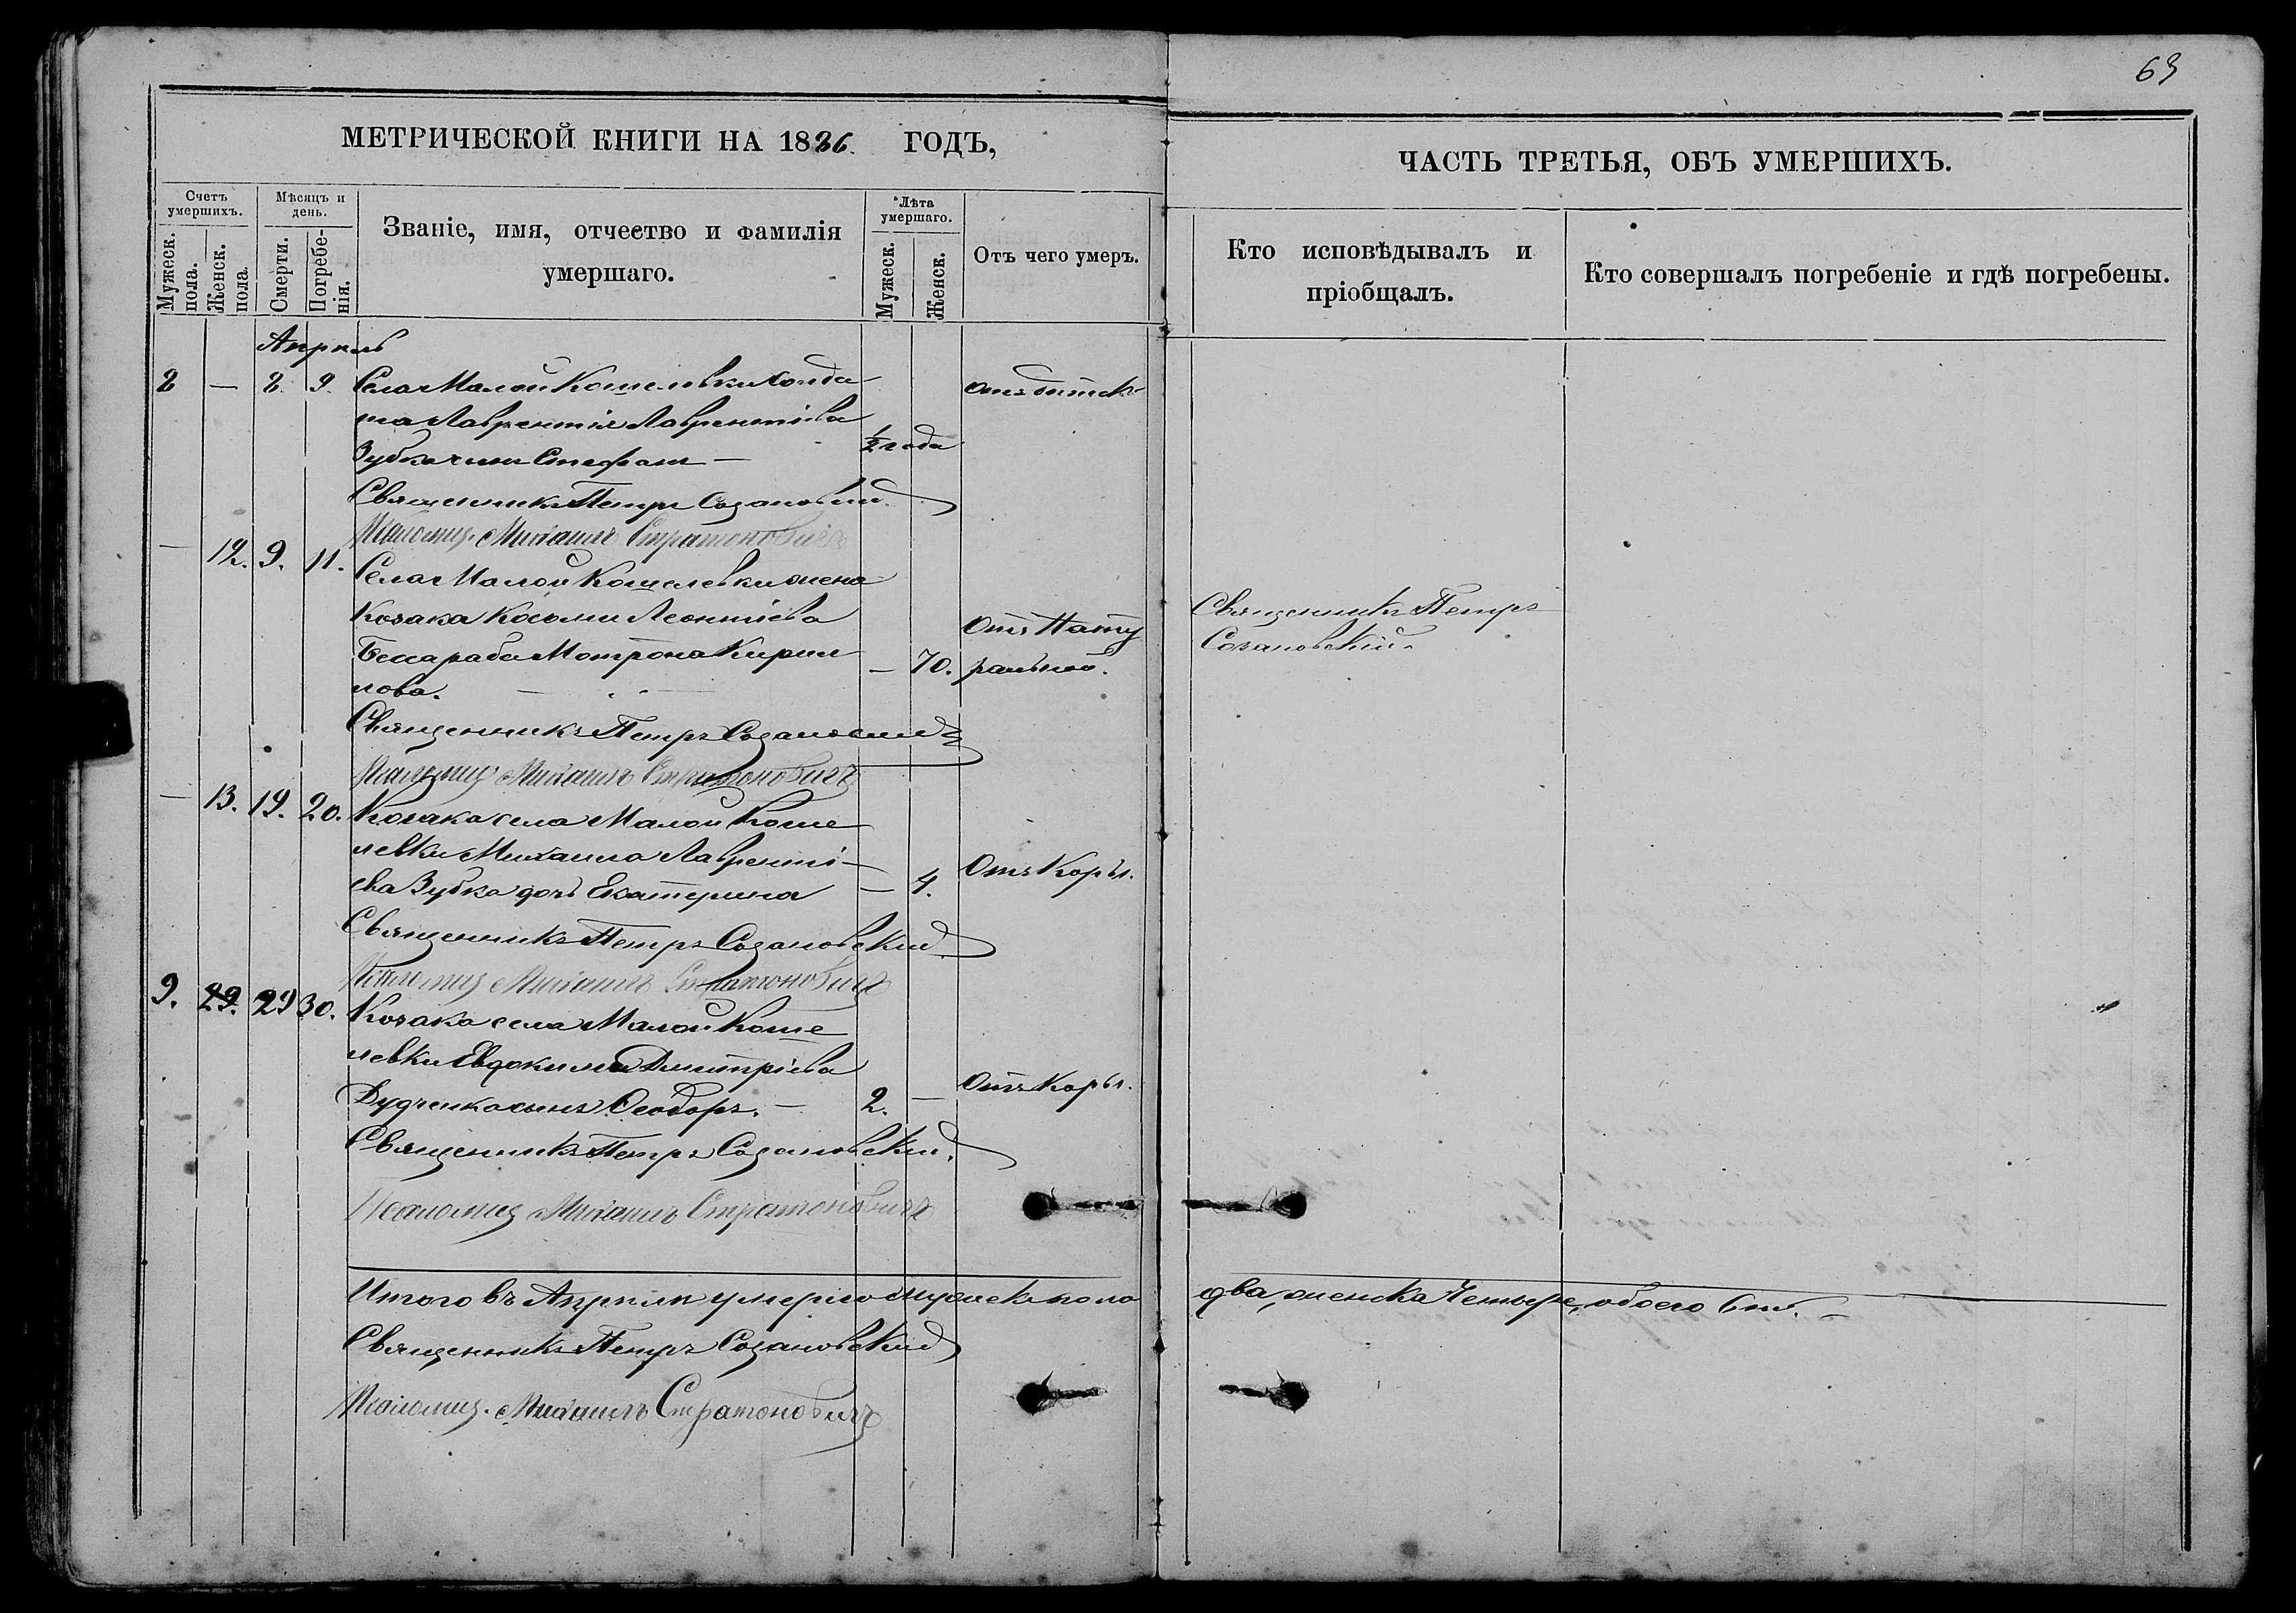 63
МЕТРИЧЕСКОЙ КНИГИ НА 1886 ГОДЪ,
ЧАСТЬ ТРЕТЬЯ, ОБЪ УМЕРШИХЪ.
Счетъ умершихъ.
Мужеск. пола.
Женск. пола.
Мѣсяцъ и день.
Смерти.
Погребенія.
Званіе, имя, отчество и фамилія умершаго.
Лѣта умершаго.
Мужеск.
Женск.
Отъ чего умеръ.
Кто исповѣдывалъ и пріобщалъ.
Кто совершалъ погребеніе и гдѣ погребены.
Апрель
8 — 8 9 Села Малой Кошелевки Солда-
та Лаврентія Лаврентіева
Зубка сынъ Стефанъ — ½ года
Священникъ Петръ Созановскій
Псаломщ. Михаилъ Стратоновичъ
— 12. 9. 11. Села Малой Кошелевки жена
Козака Космы Леонтіева
Бессараба Мотрона Кирил-
лова. — 70. Отъ Нату-
ральной.
Священникъ Петръ
Созановскій.
Священникъ Петръ Созановскій
Псаломщ Михаилъ Стратоновичъ
— 13. 19. 20. Козака села Малой Коше-
левки Михаила Лавренті-
ева Зубка дочь Екатерина — 4. Отъ Коры.
Священникъ Петръ Созановскій
Псаломщ Михаилъ Стратоновичъ
9. 29. 29 30. Козака села Малой Коше-
левки Евдокима Дмитріева
Дудченка сынъ Ѳеодоръ. — 2. — Отъ Коры.
Священникъ Петръ Созановскій.
Псаломщ Михаилъ Стратоновичъ
Итого въ Апрѣлѣ умерло мужеска пола два, женска Четыре, обоего 6ть.
Священникъ Петръ Созановскій
Псаломщ. Михаилъ Стратоновичъ